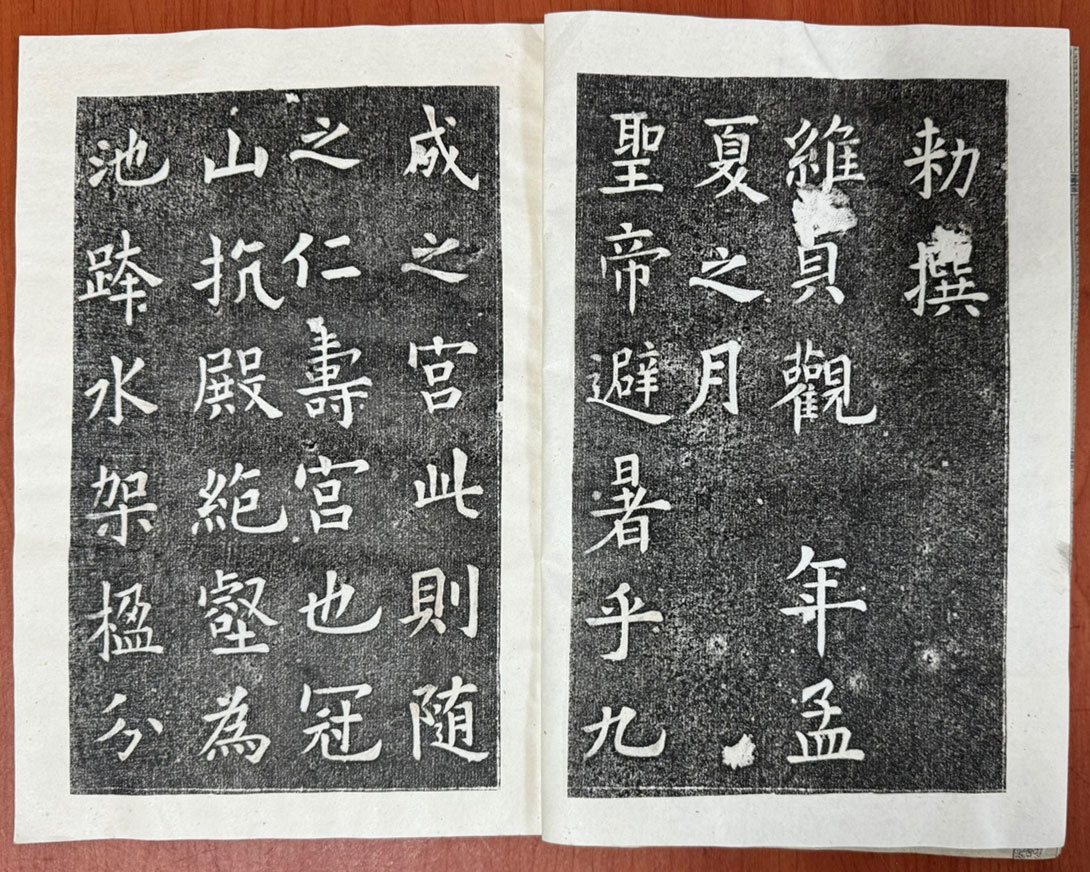 勅撰
維貞觀年孟
夏之月
聖帝避暑乎九
成之宮此則隨
之仁壽宮也冠
山抗殿絶壑為
池跨水架楹分